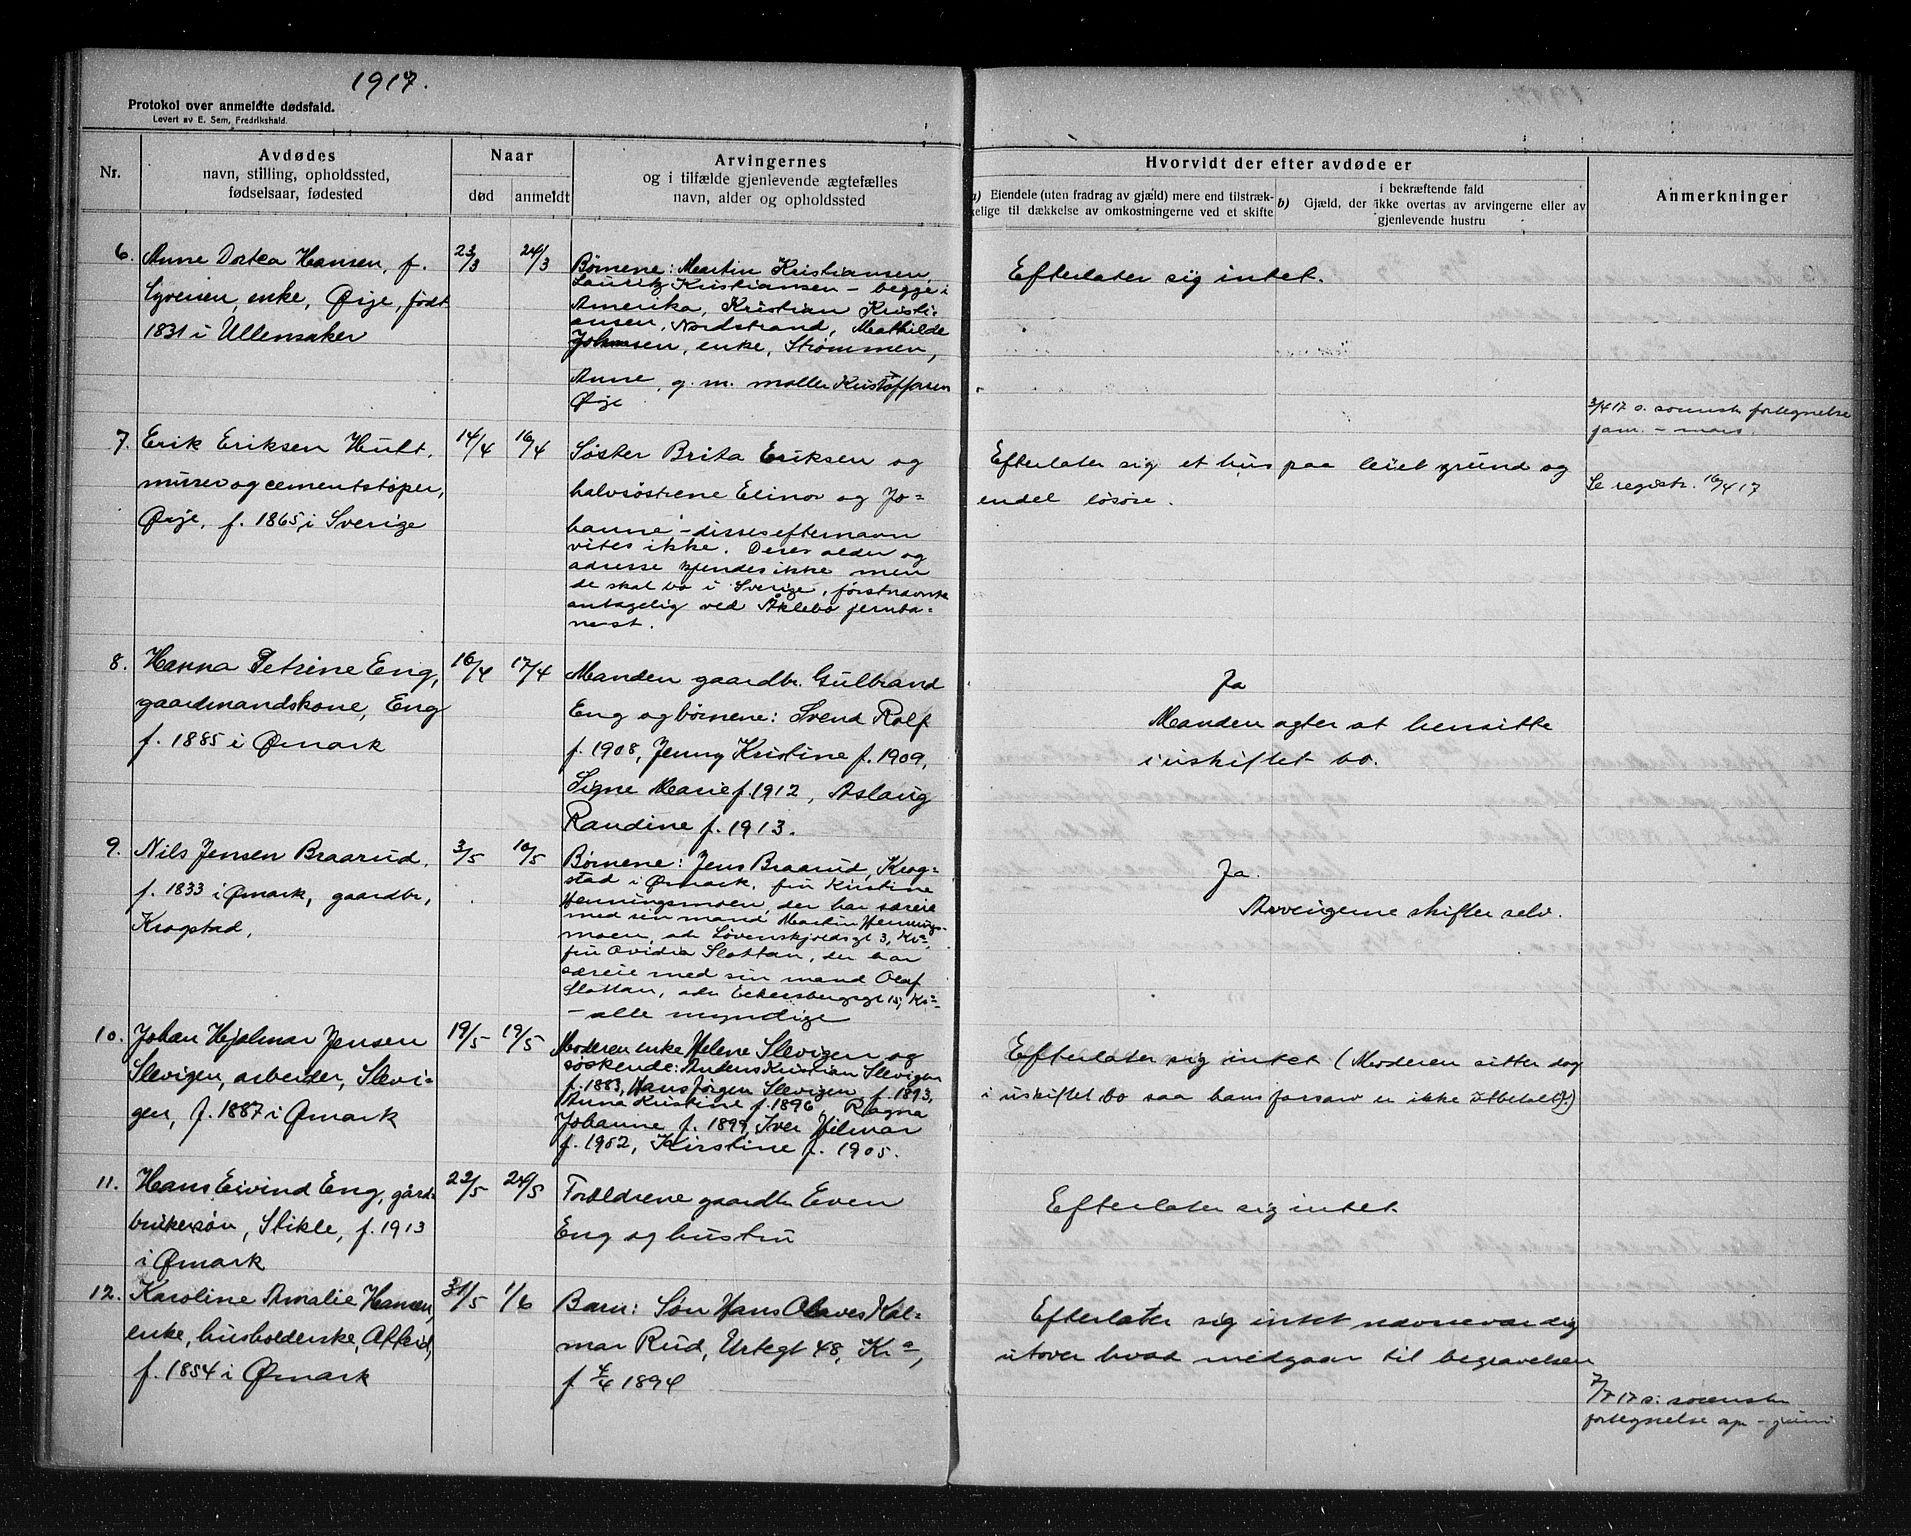 1917.
Protokol over anmeldte dødsfald.
Levert av E. Sem, Fredrikshald.
Nr.
Avdødes
navn, stilling, opholdssted,
fødselsaar, fødested
Naar
død
anmeldt
Arvingernes
og i tilfælde gjenlevende ægtefælles
navn, alder og opholdssted
Hvorvidt der efter avdøde er
a) Eiendele (uten fradrag av gjæld) mere end tilstræk-
kelige til dækkelse av omkostningerne ved et skifte
i bekræftende fald
b) Gjæld, der ikke overtas av arvingerne eller av
gjenlevende hustru
Anmerkninger
6. Anne Dortea Hansen, f.
Syversen, enke, Ørje, født
1831 i Ullensaker
23/3
24/3
Børnene: Martin Kristiansen,
Lauritz Kristiansen - begge i
Amerika, Kristian Kristi-
ansen, Nordstrand, Mathilde
Johansen, enke, Strømmen,
Anne, g. m. møller Kristoffersen
Ørje
Efterlater sig intet.
3/4 17 s. summ. fortegnelse
jan. - mars.
7. Erik Eriksen Hult,
murer og cementstøper,
Ørje, f. 1865 i Sverige
14/4
16/4
Søster Brita Eriksen og
halvsøstrene Elinor og Jo-
hanne - disses efternavn
vites ikke. Deres alder og
adresse kjendes ikke men
de skal bo i Sverige, førstnævnte
antagelig ved Åklebo jernba-
nest.
Efterlater sig et hus paa leiet grund og
endel løsøre.
Se registr. 16/4 17
8. Hanna Petrine Eng,
gaardmandskone, Eng
f. 1885 i Ømark
16/4
17/4
Manden gaardbr. Gulbrand
Eng og børnene: Svend Rolf
f. 1908, Jenny Kristine f. 1909,
Signe Marie f. 1912, Aslaug
Randine f. 1913.
Ja
Manden agter at hensitte
i uskiftet bo.
9. Nils Jensen Braarud,
f. 1833 i Ømark, gaardbr,
Krogstad,
3/5
10/5
Børnene: Jens Braarud, Krog-
stad i Ømark, fru Kristine
Henningsmoen, der har særeie
med sin mand Martin Hennings-
moen, adr Løvenskjoldsgt 3, Kr.a,
fru Ovidia Slottan, der har
særeie med sin mand Olaf
Slottan, adr Eckersbergsgt 15, Kr.a
- alle myndige
Ja.
Arvingerne skifter selv.
10. Johan Hjalmar Jensen
Slevigen, arbeider, Slevi-
gen, f. 1887 i Ømark
19/5
19/5
Moderen enke Helene Slevigen og
søskende: Anders Kristian Slevigen
f. 1883, Hans Jørgen Slevigen, f. 1893,
Anna Kristine f. 1896, Ragna
Johanne f. 1899, Iver Hilmar
f. 1902, Kirstine f. 1905.
Efterlater sig intet (Moderen sitter dog
i uskiftet bo saa hans farsarv er ikke utbetalt).
11. Hans Eivind Eng, gård-
brukersøn, Stikle, f. 1913
i Ømark
22/5
24/5
Forældrene gaardbr Even
Eng og hustru
Efterlater sig intet
12. Karoline Amalie Hansen,
enke, husholderske,
f. 1854 i Ømark
31/5
1/6
Barn: Søn Hans Olaves Kal-
mar Rud, Urtegt 48, Kr.a,
f 4/6 1894
Efterlater sig intet nævneværdig
utover hvad medgaar til begravelsen
7/7 17 s: summ.
fortegnelse apr - juni